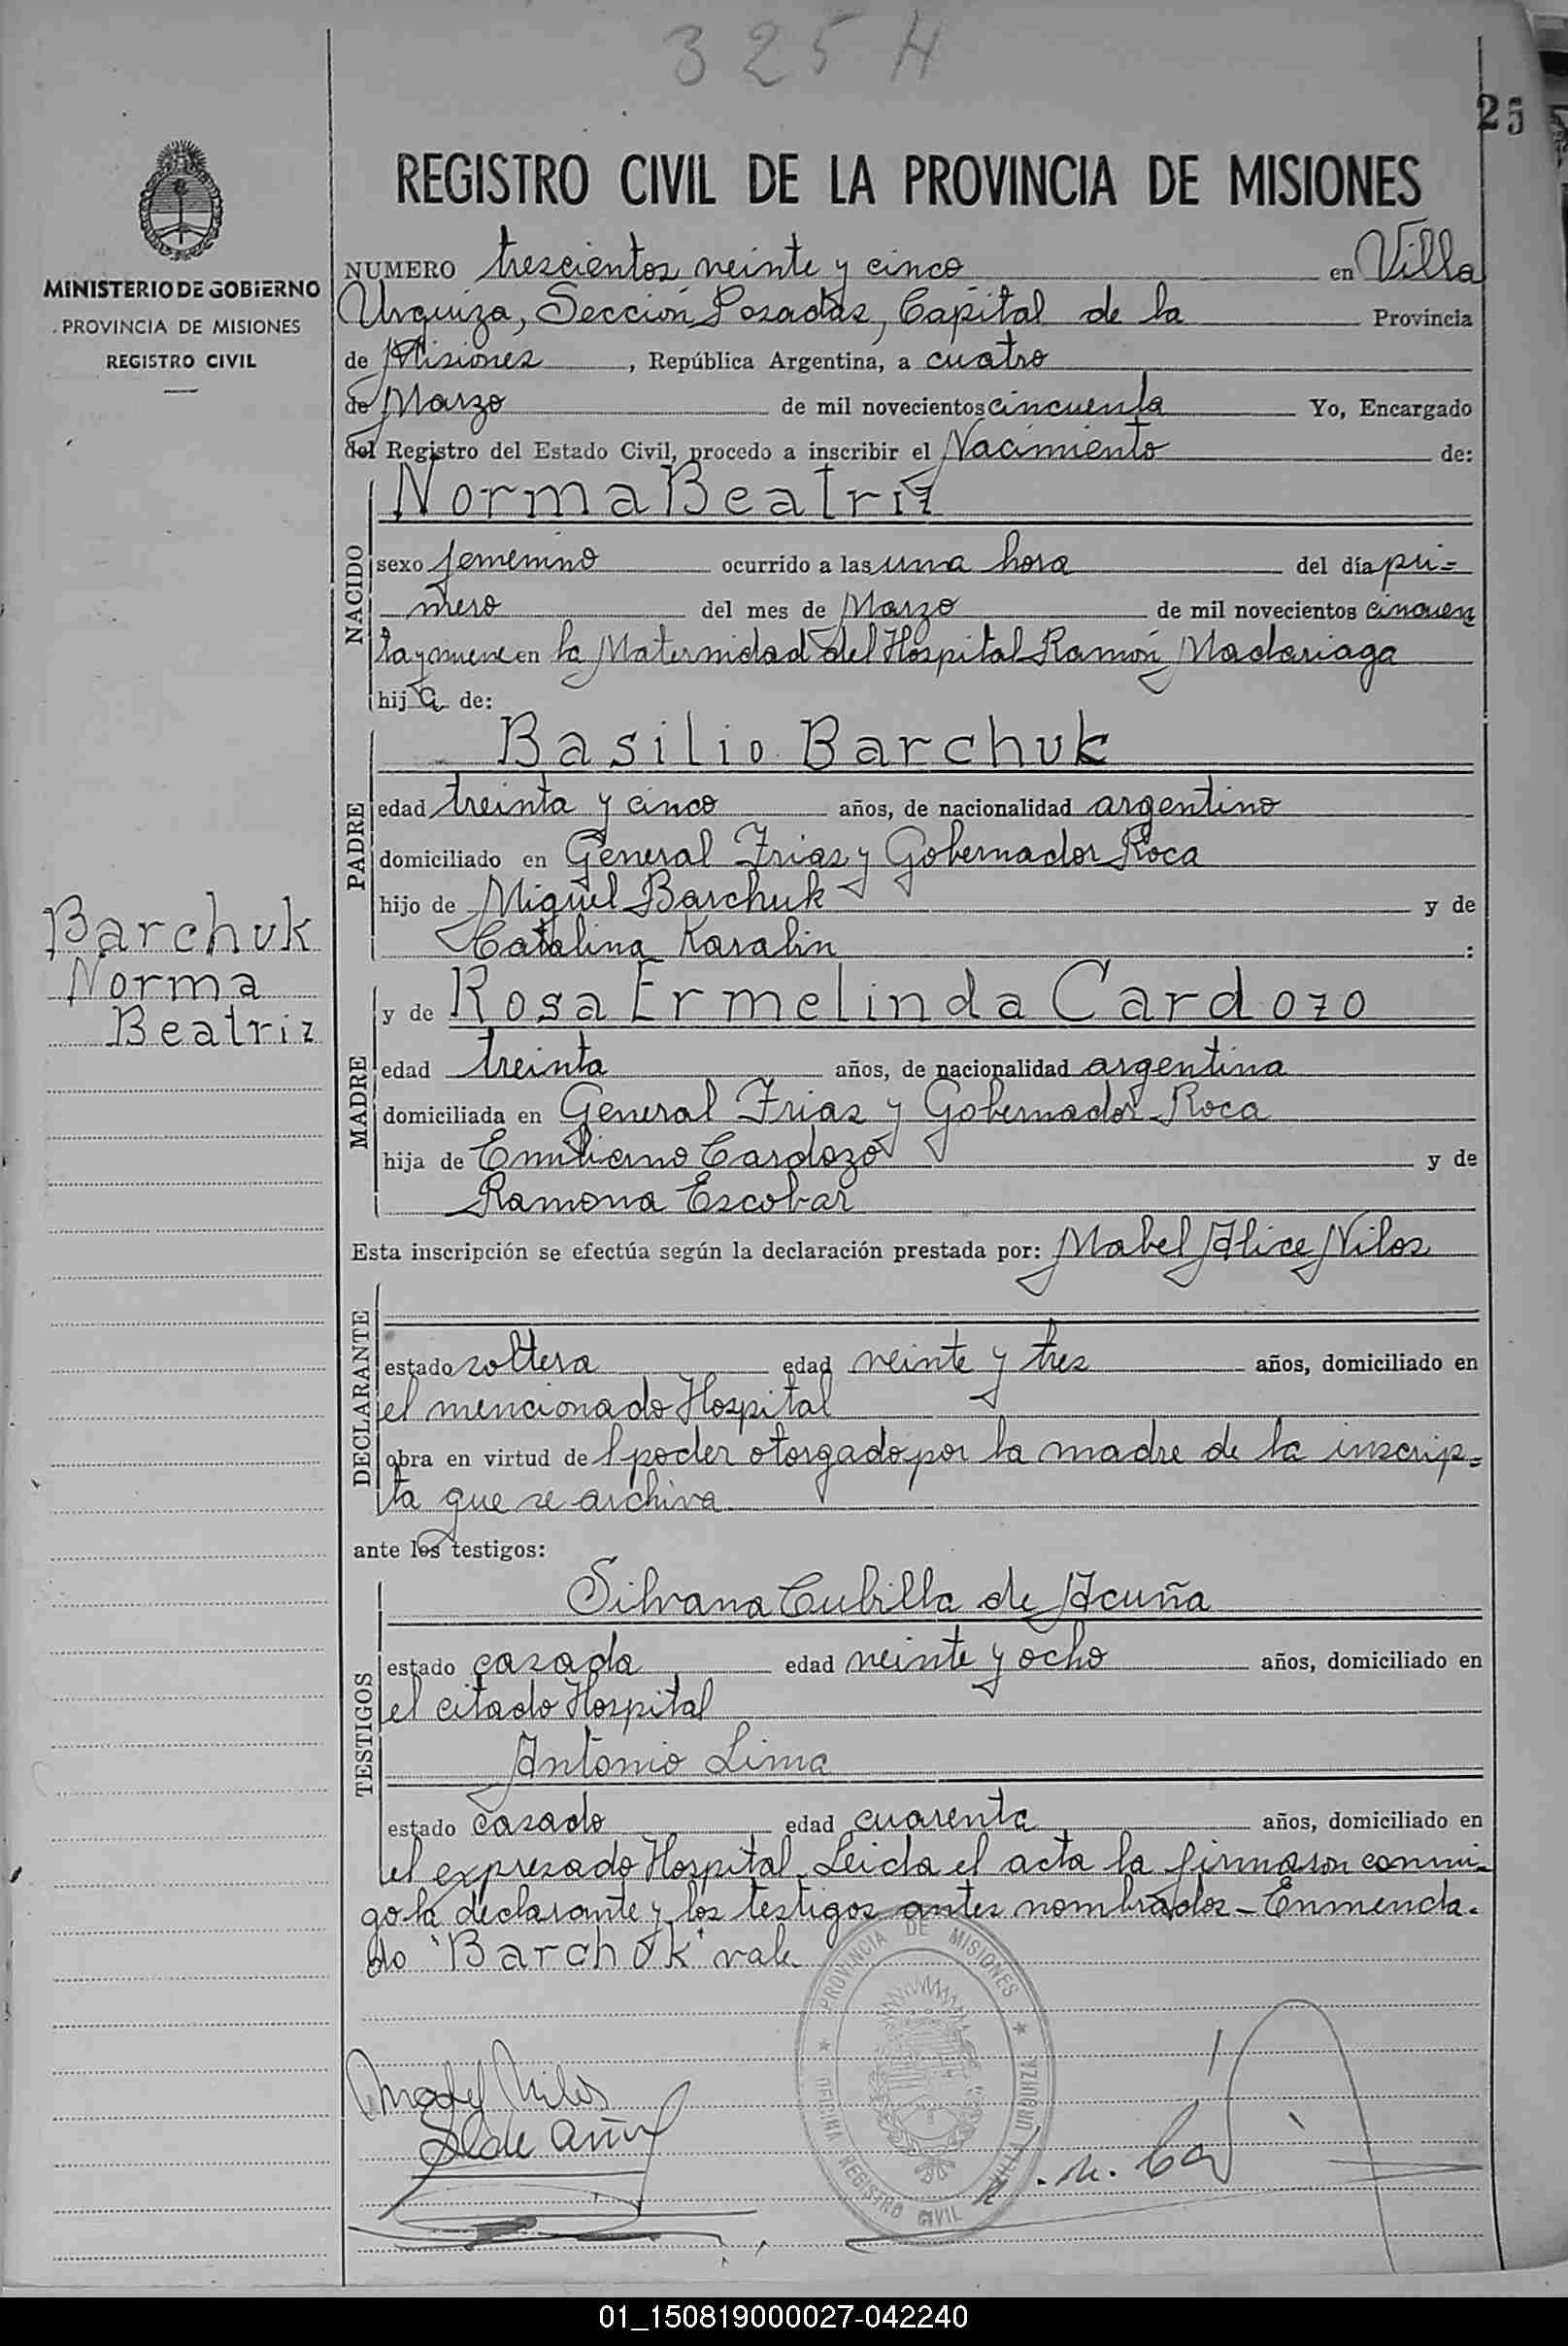 325 H
25
MINISTERIO DE GOBIERNO
PROVINCIA DE MISIONES
REGISTRO CIVIL
REGISTRO CIVIL DE LA PROVINCIA DE MISIONES
NUMERO trescientos veinte y cinco en Villa
Urquiza, Sección Posadas, Capital de la Provincia
de Misiones, República Argentina, a cuatro
de Marzo de mil novecientos cincuenta Yo, Encargado
del Registro del Estado Civil, procedo a inscribir el Nacimiento de:
NACIDO
Norma Beatriz
sexo femenino ocurrido a las una hora del día pri=
mero del mes de Marzo de mil novecientos cincuen
ta y nueve en la Maternidad del Hospital Ramón Madariaga
hija de:
PADRE
Basilio Barchuk
edad treinta y cinco años, de nacionalidad argentino
domiciliado en General Frias y Gobernador Roca
hijo de Miguel Barchuk y de
Catalina :
Barchuk
Norma
Beatriz
MADRE
y de Rosa Ermelinda Cardozo
edad treinta años, de nacionalidad argentina
domiciliada en General Frias y Gobernador Roca
hija de Cardozo y de
Ramona Escobar
Esta inscripción se efectúa según la declaración prestada por: Mabel Alice Nilos
DECLARANTE
estado soltera edad veinte y tres años, domiciliado en
el mencionado Hospital
obra en virtud del poder otorgado por la madre de la inscrip=
ta que se archiva
ante los testigos:
TESTIGOS
Silvana Cubilla de Acuña
estado casada edad veinte y ocho años, domiciliado en
el citado Hospital
Antonio Lima
estado casado edad cuarenta años, domiciliado en
el expresado Hospital. Leida el acta la firmaron conmi-
go la declarante y los testigos antes nombrados - Enmenda-
do "Barchuk" vale.
PROVINCIA DE MISIONES
OFICINA REGISTRO CIVIL VILLA URQUIZA
Mabel Nilos
01_150819000027-042240